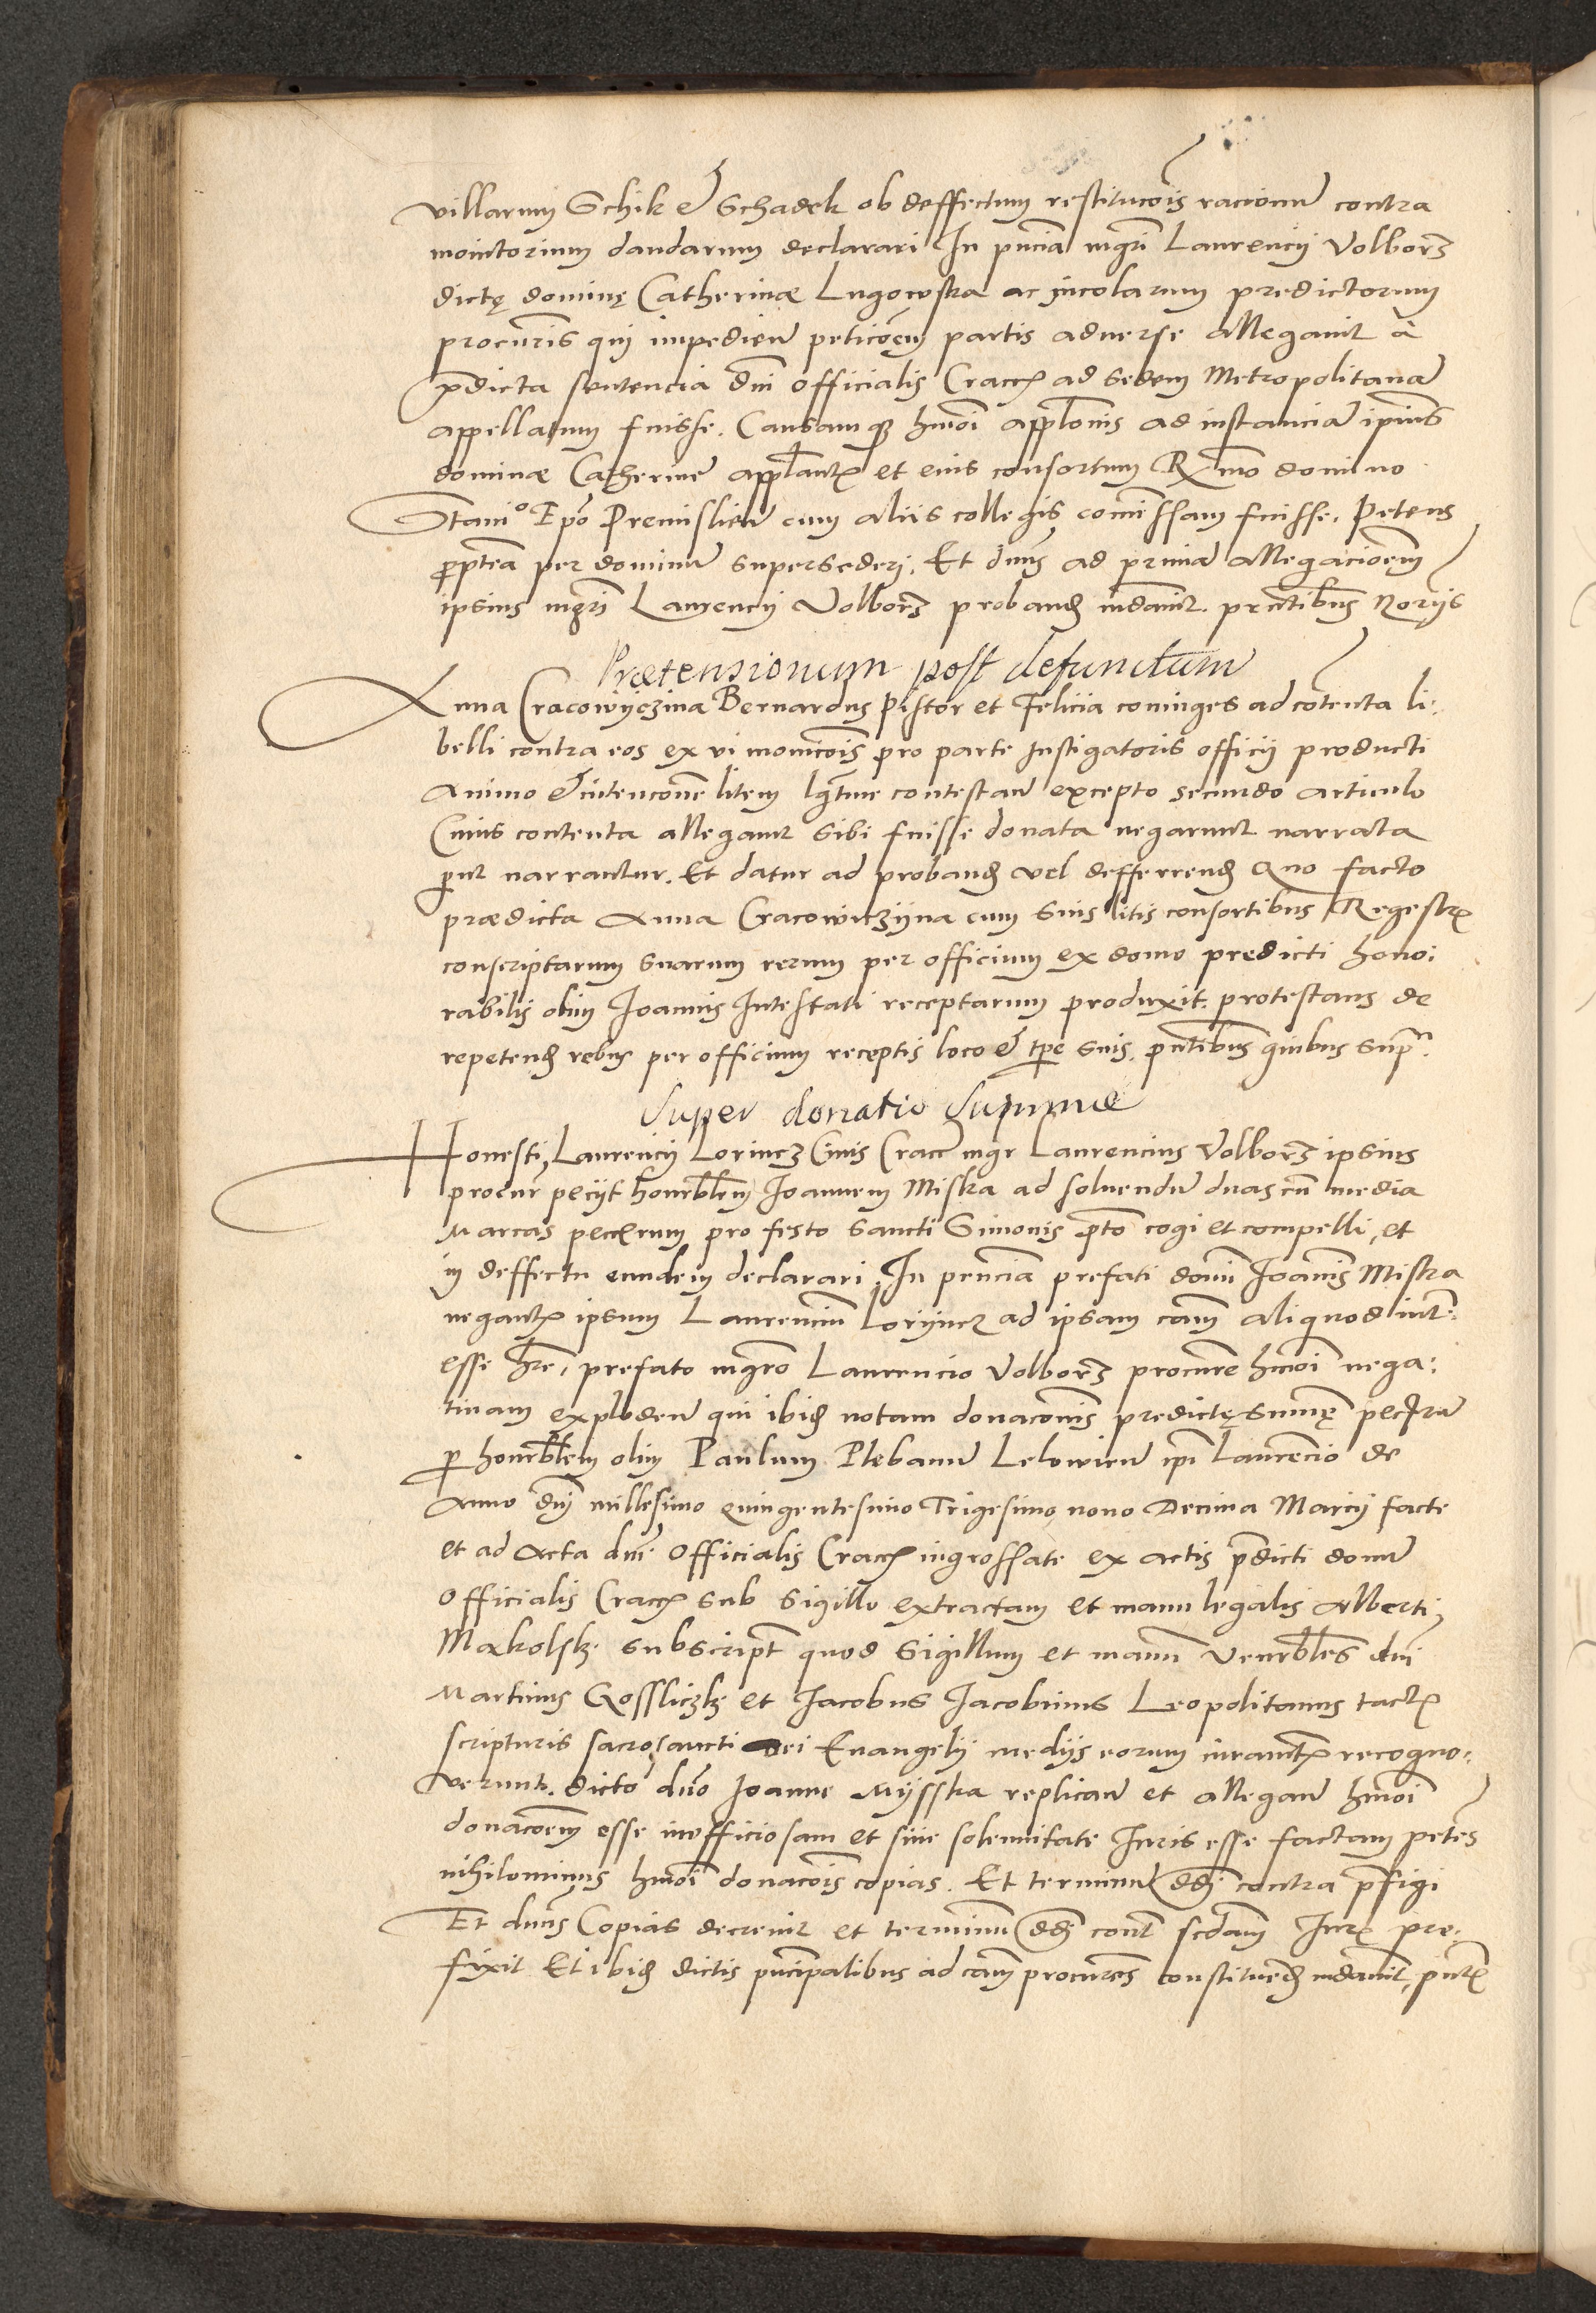 villarum Gchik et Gchadek ob deffectum restitucois racionu contra
monitorium dandarum declarari In pncia mgri Laurencij Volborz
dictę dominę Catherinæ Lugowska ac incolarum predictorum
procuris qui impediens peticoem partis aduerse allegauit à
pdicta sentencia dni officialis Cracn ad sedem Metropolitana
appellatum fuisse. Causam q hmoi applonis ad instancia ipius
dominæ Catherine applants et eius consortum Rmo domino
Stanio Epo Premislien cum aliis collegis comissam fuisse. Petens
ptea per dominu supersederj. Et dnus ad prima allegacioem
ipsius mgri Laurencij Volborz proband mdauit. pntibus Norijs
Prætensionum post defunctum
Anna Cracowijczina Bernardus Pistor et Felicia coniuges ad cotenta li¬
belli contra eos ex vi monicois pro parte Instigatoris officij producti
Animo et intencone litem lgtime contestan excepto secundo articulo
Cuius contenta allegant sibi fuisse donata negarunt narrata
put narrantur. Et datur ad proband vel defferrend Quo facto
prædicta Anna Cracowiczijna cum suis litis consortibus Regestr
conscriptarum suarum rerum per officium ex domo predicti hono¬
rabilis olim Joannis Intestati receptarum produxit protestans de
repetend rebus per officium receptis loco et tpe suis. pntibus quibus supra
Super donatio Summæ
Honesti Laurencij Lorincz Ciuis Cracn mgr Laurencius Volborz ipsius
procur peciit honorblem Joannem Miska ad soluendu duas cu media
Marcas peccrum pro festo Sancti Simonis pto cogi et compelli, et
in deffectu eundem declarari. In pncia prefati domi Joannis Miska
negants ipsum Laurenciu Lorijncz ad ipsam cam aliquod int¬
esse hre, prefato mgro Laurencio Volborz procure hmoi nega¬
tiuam exploden qui ibid notam donaconis predictę sumę peccru
p honorblem olim Paulum Plebanu Lelowien ipi Laurencio de
Anno dnj millesimo quingentesimo Trigesimo nono Decima Marcij facte
et ad Acta dni Officialis Cracn ingrossate ex actis pdicti domi
Officialis Cracn sub Sigillo extractam et manu legalis Alberti
Makolsk subscript quod Sigillum et manu Venerbles dni
Martinus Gossliczk et Jacobus Jacobinus Leopolitanus tactis
scripturis sacrosancti Dei Euangelij medijs eorum iuramts recogno¬
uerunt. dicto dno Joanne Mijsska replican et allegan hmoi
donacoem esse inofficiosam et sine solennitate Iuris esse factam petes
nihilominus hmoi donacois copias. Et terminu dd contra pfigi
Et dnus Copias decreuit et terminu dd cont scdam Iur pre¬
fixit Et ibid dictis pncipalibus ad cam procures constituend mdauit, pntes